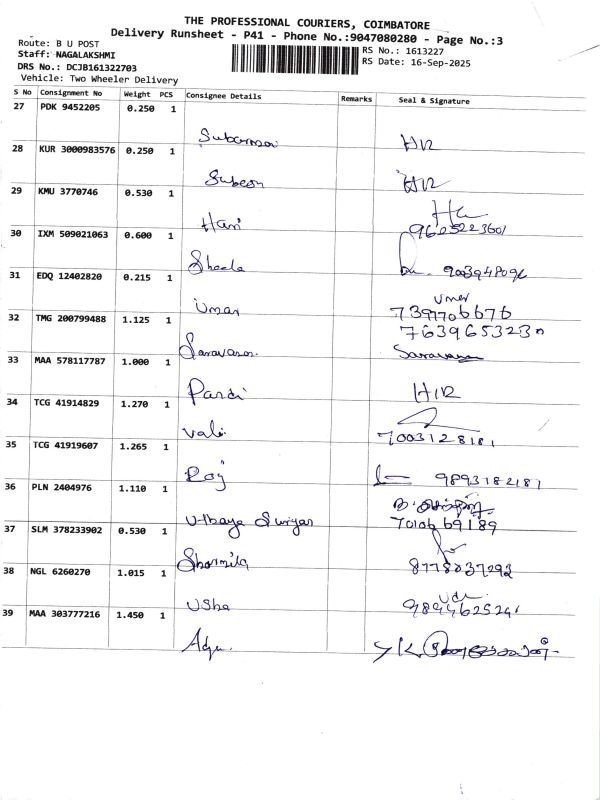 THE PROFESSIONAL COURIERS, COIMBATORE
Delivery Runsheet - P41 - Phone No.:9047080280 - Page No.:3
Route: B U POST
RS No.: 1613227
Staff: NAGALAKSHMI
RS Date: 16-Sep-2025
DRS No.: DCJB161322703
Vehicle: Two Wheeler Delivery
S No Consignment No Weight PCS Consignee Details Remarks Seal & Signature
27 PDK 9452205 0.250 1
28 KUR 3000983576 0.250 1
29 KMU 3770746 0.530 1
Hari
30 IXM 509021063 0.600 1
Sheela
31 EDQ 12402820 0.215 1
Umar Umer
7397706676
32 TMG 200799488 1.125 1
Saravanan
33 MAA 578117787 1.000 1
34 TCG 41914829 1.270 1
Vali 7003128181
35 TCG 41919607 1.265 1
Roj 9893182181
36 PLN 2404976 1.110 1
Uthaya Suriyan 7010669189
37 SLM 378233902 0.530 1
Sharmila 8778037292
38 NGL 6260270 1.015 1
Usha
39 MAA 303777216 1.450 1